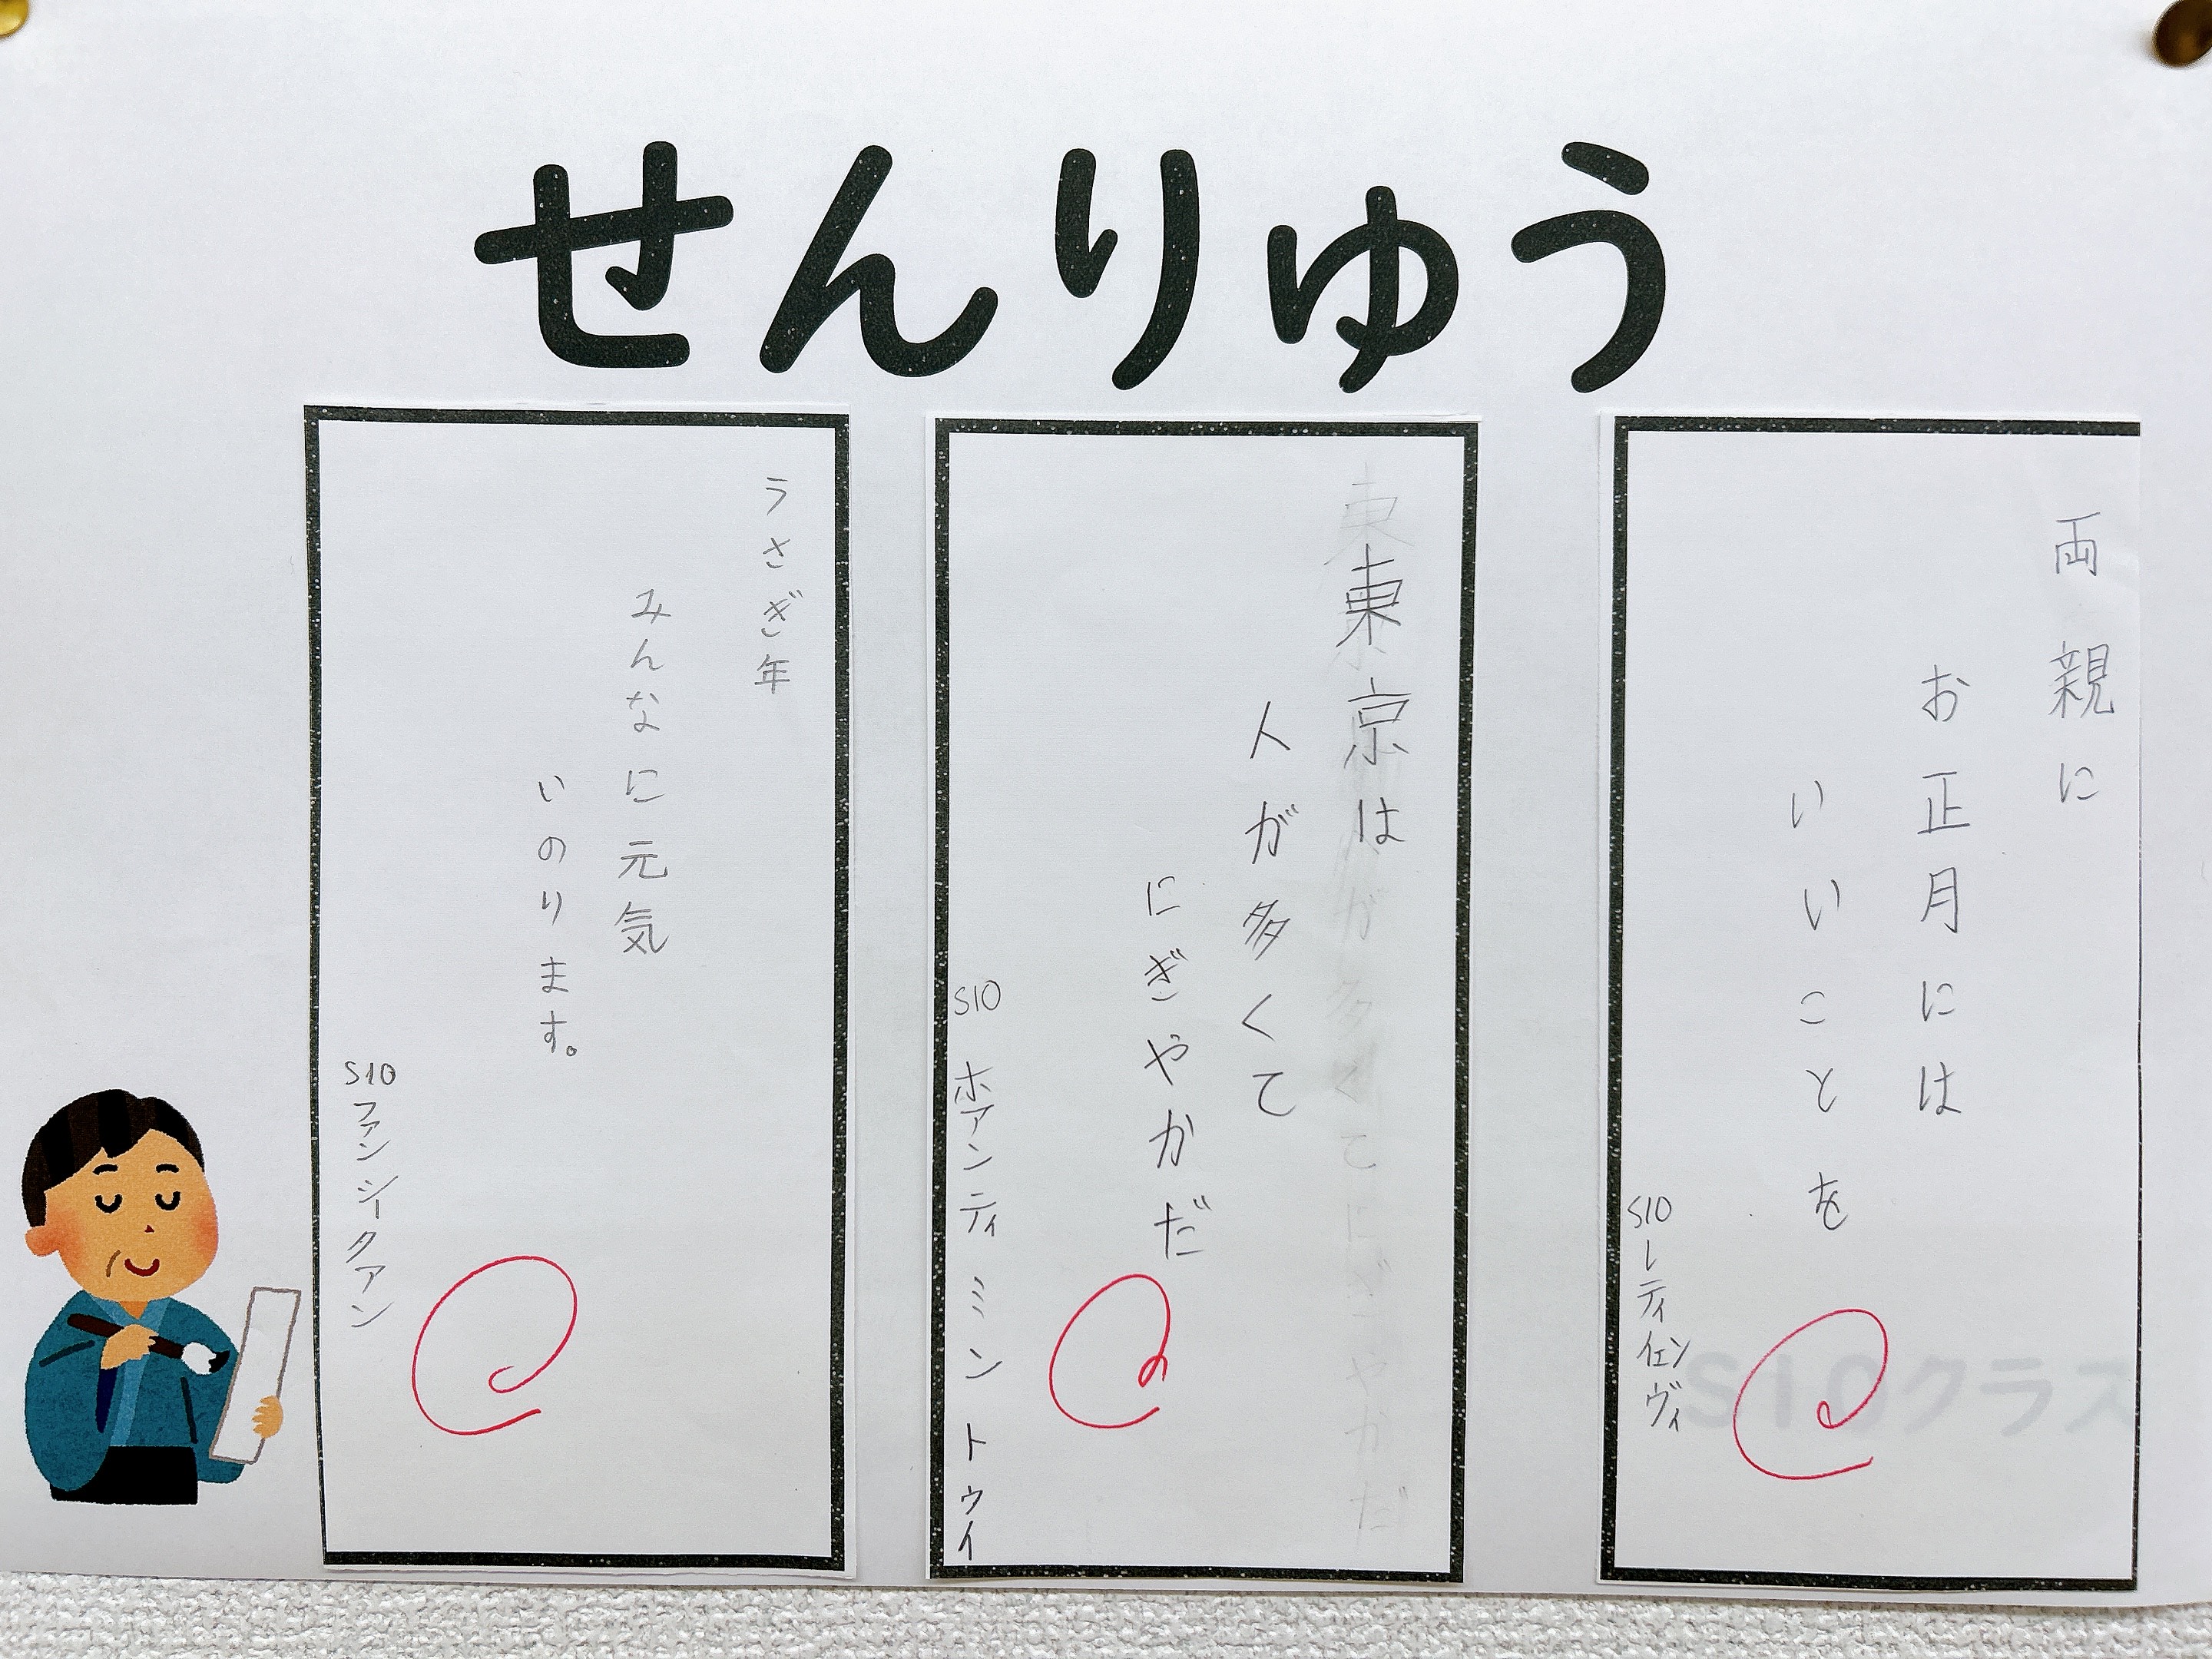 せんりゅう
両親に
お正月には
いいことを
S10 レティイェンヴィ
S10クラス
東京は
人が多くて
にぎやかだ
S10 ホアンティ ミン トゥイ
うさぎ年
みんなに元気
いのります。
S10 ファン シークアン